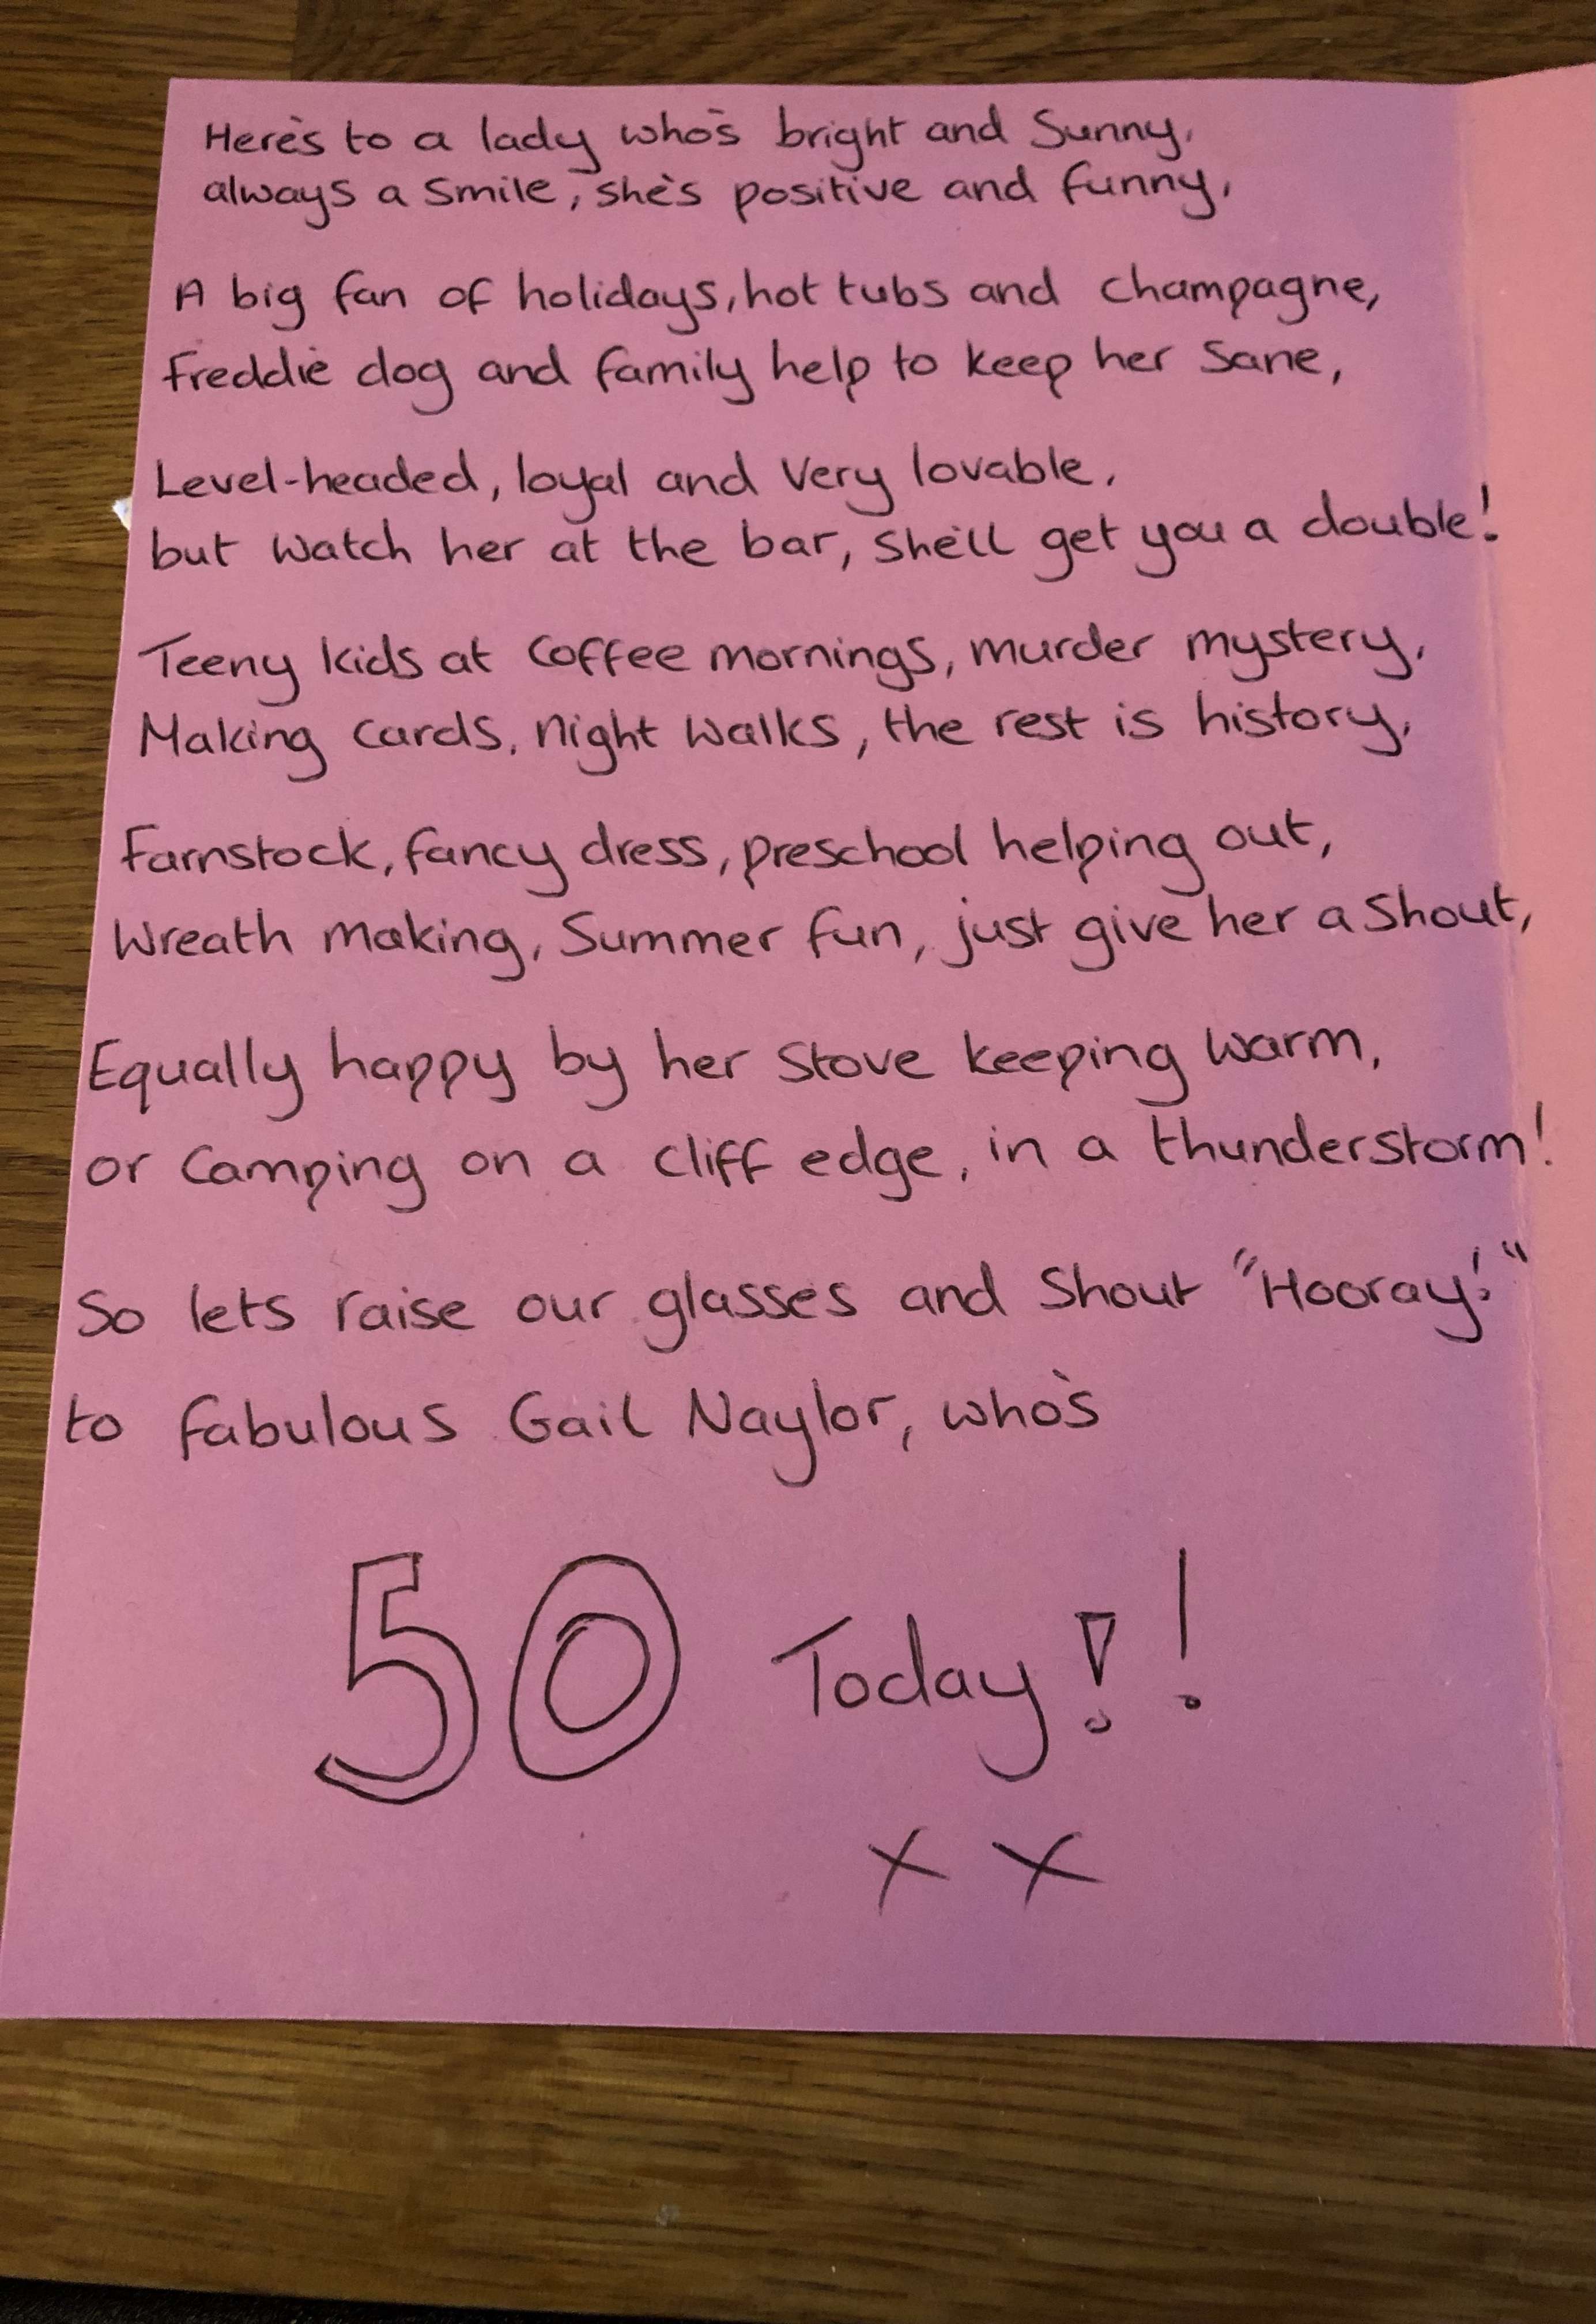 Here's to a lady who's bright and Sunny,
always a smile, she's positive and funny,
A big fan of holidays, hot tubs and champagne,
Freddie dog and family help to keep her Sane,
Level-headed, loyal and Very lovable,
but watch her at the bar, she'll get you a double!
Teeny kids at Coffee mornings, murder mystery,
Making Cards, night walks, the rest is history,
Farnstock, fancy dress, preschool helping out,
Wreath making, Summer fun, just give her a Shout,
Equally happy by her Stove keeping warm,
or Camping on a cliff edge, in a thunderstorm!
So lets raise our glasses and Shout "Hooray!"
to fabulous Gail Naylor, who's
50 Today!!
x x